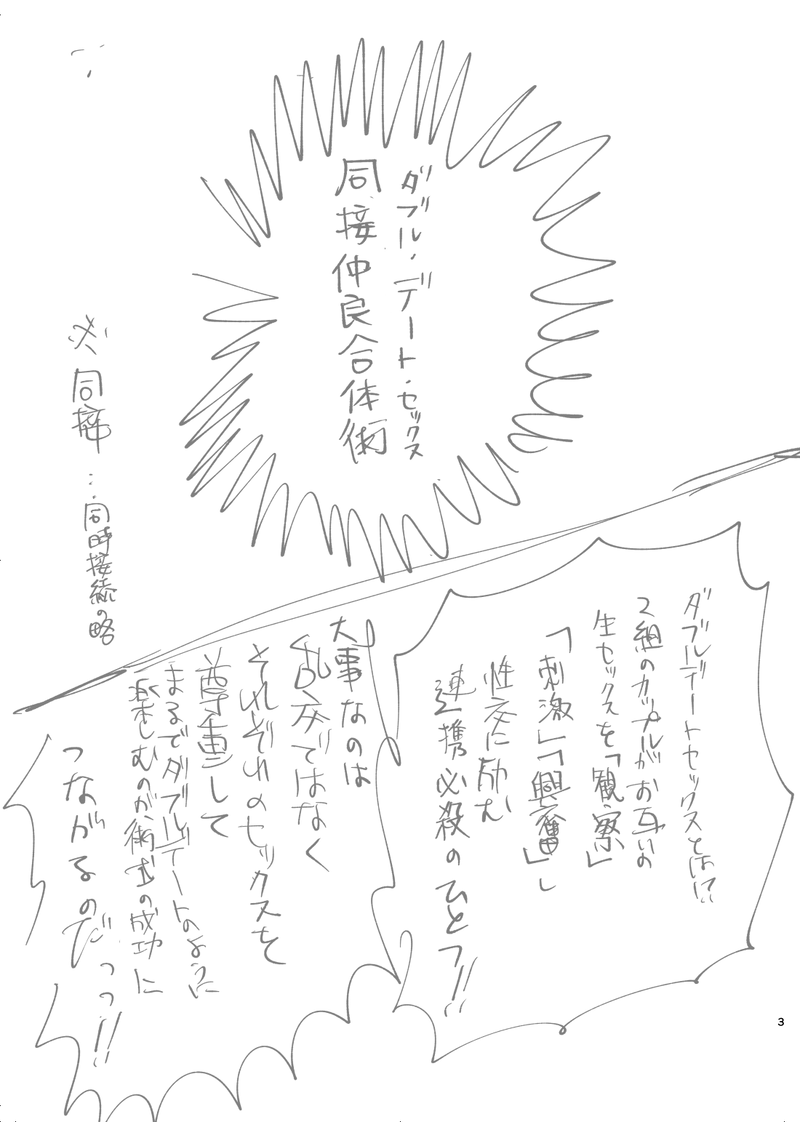 ダブル・デート・セックス
同接仲良合体術
※同接…同時接続の略
ダブルデートセックスとは!?
2組のカップルがお互いの
生セックスを「観察」
「刺激」「興奮」し
性交に励む
連携必殺のひとつ!!
大事なのは
乱交ではなく
それぞれのセックスを
尊重して
まるでダブルデートのように
楽しむのが術式の成功に
つながるのだっっ!!
3